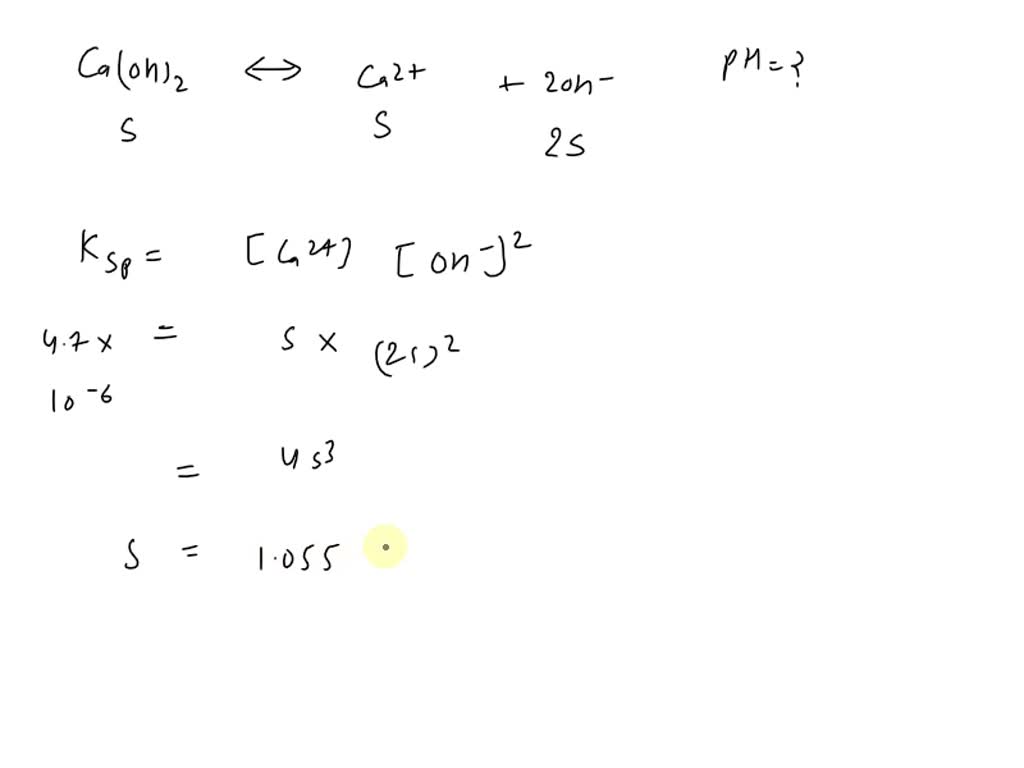 Ca(oh)₂ ⟷ Ca²⁺ + 2oh⁻ pH = ?
S S 2S
Ksp = [Ca²⁺] [oh⁻]²
4.7 x = S x (2s)²
10⁻⁶
= 4s³
S = 1.055